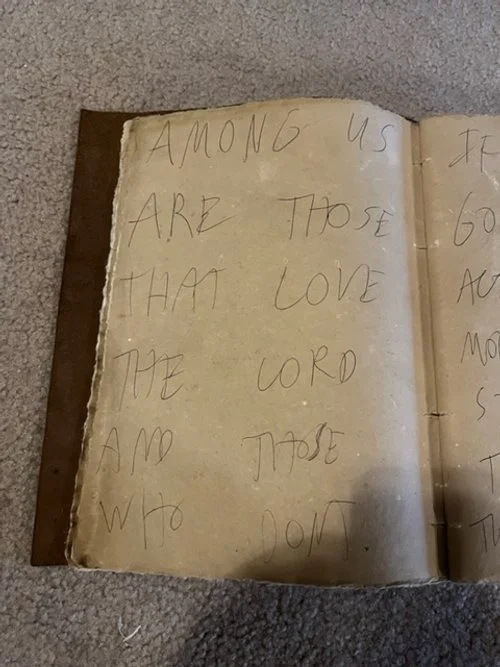 AMONG US
ARE THOSE
THAT LOVE
THE LORD
AND THOSE
WHO DONT.
IF
GO
ACT
MO
ST
T
TH